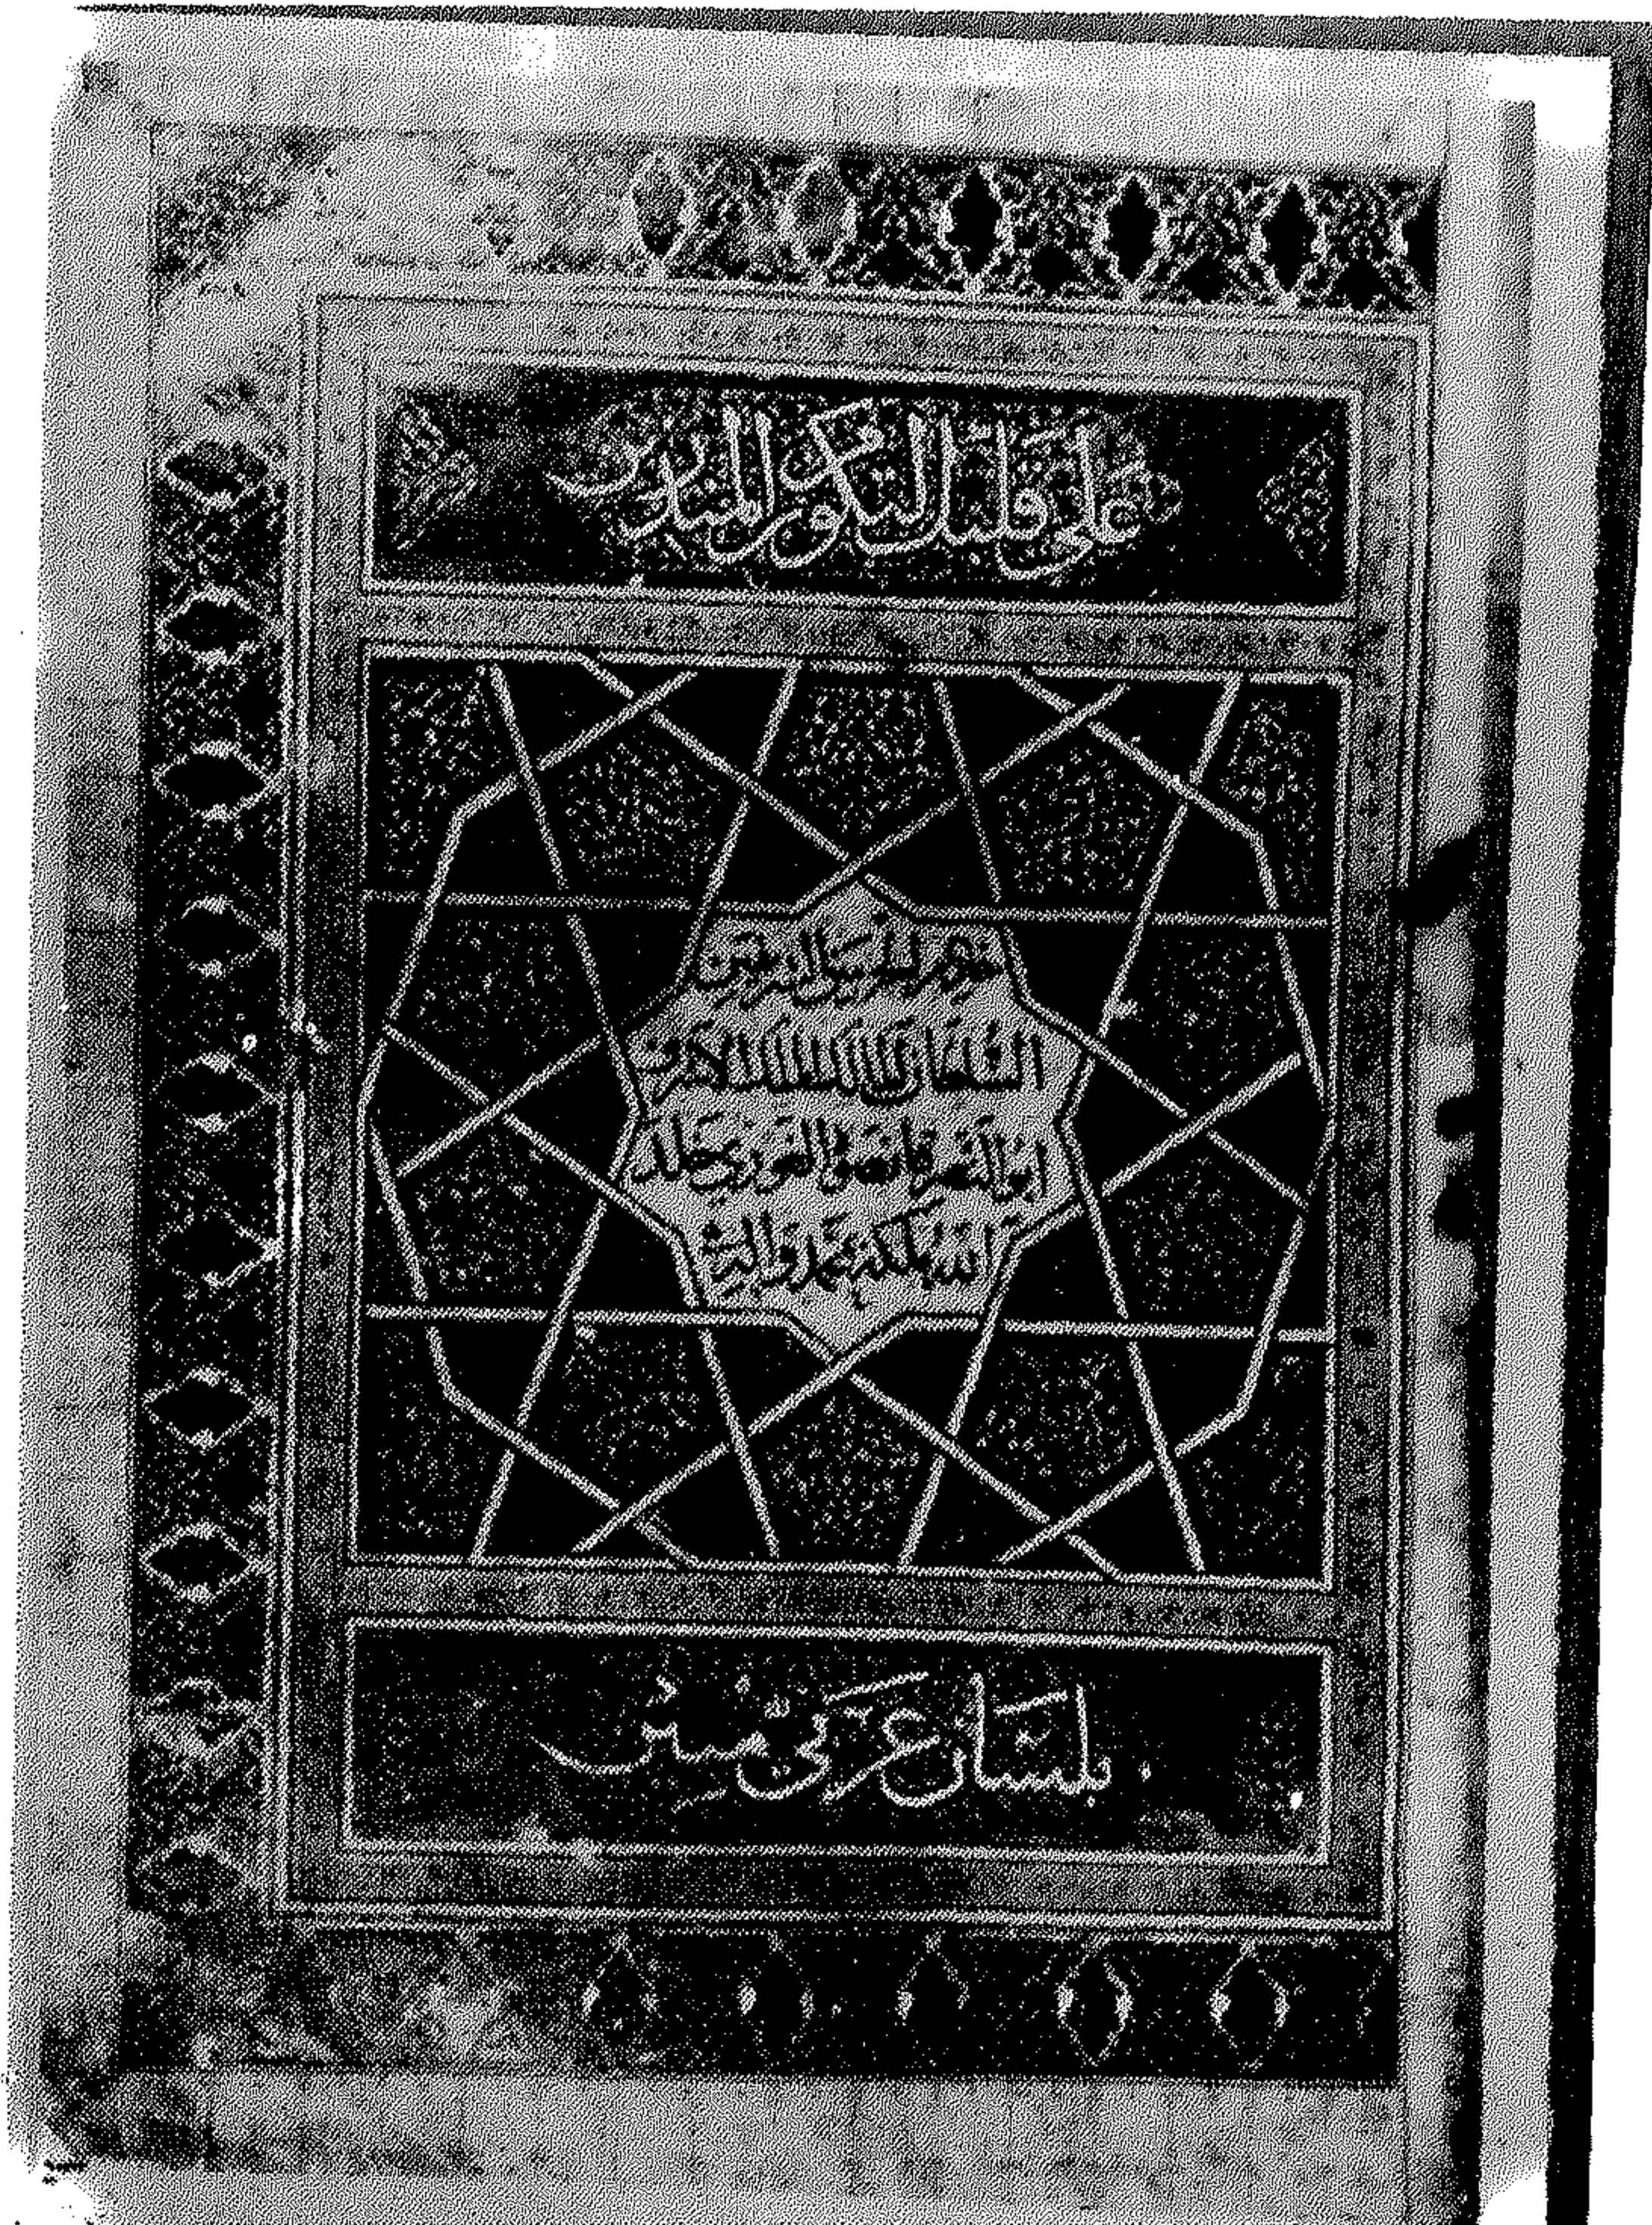 على قلبك لتكون من المنذرين
الحرمين الشريفين
السلطان الملك الاشرف
ابو النصر قانصوه الغوري خلد
الله ملكه بمحمد واله
بلسان عربي مبين